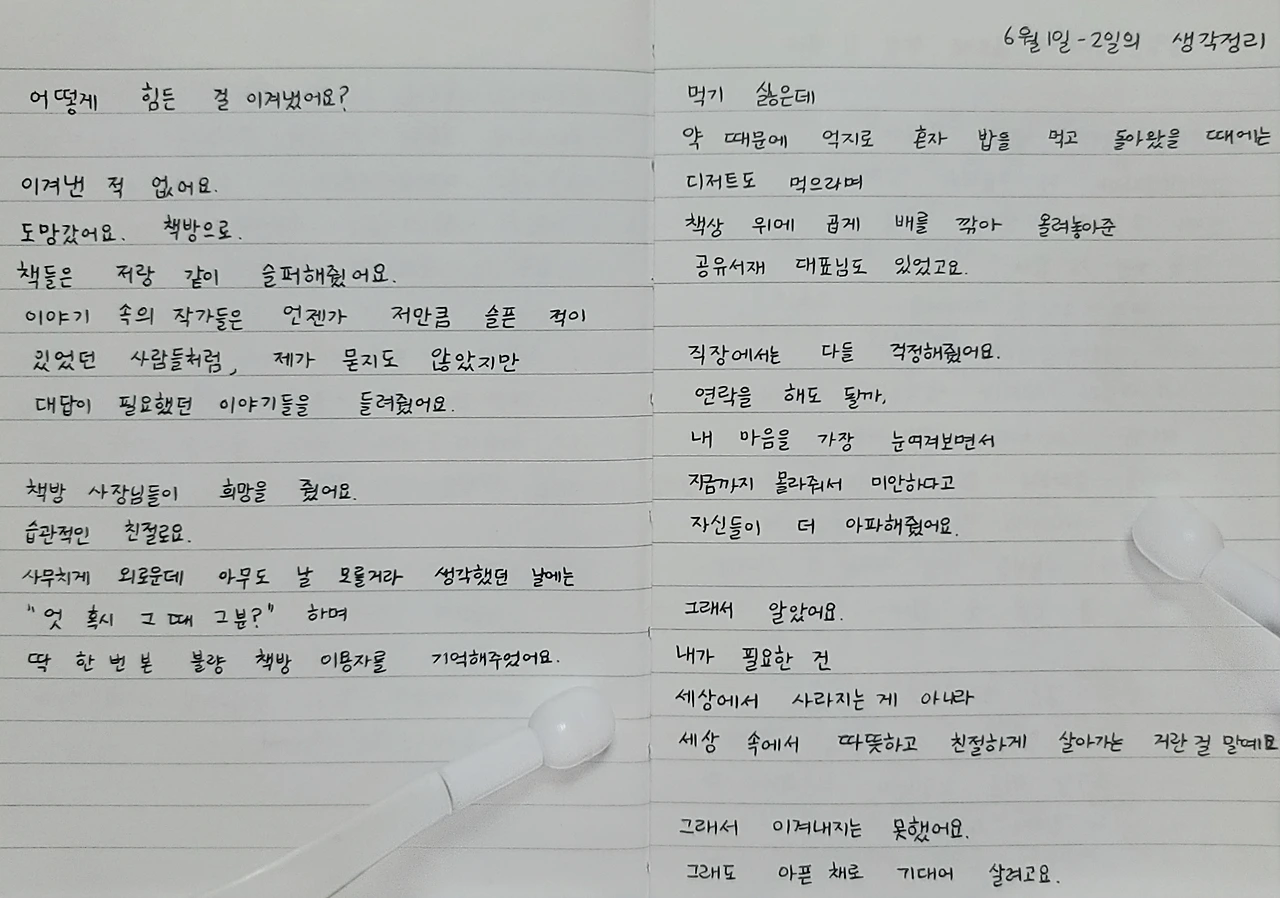 어떻게 힘든 걸 이겨냈어요?
이겨낸 적 없어요.
도망갔어요. 책방으로.
책들은 저랑 같이 슬퍼해줬어요.
이야기 속의 작가들은 언젠가 저만큼 슬픈 적이
있었던 사람들처럼, 제가 묻지도 않았지만
대답이 필요했던 이야기들을 들려줬어요.
책방 사장님들이 희망을 줬어요.
습관적인 친절로요.
사무치게 외로운데 아무도 날 모를거라 생각했던 날에는
"엇 혹시 그 때 그분?" 하며
딱 한 번 본 불량 책방 이용자를 기억해주었어요.
6월 1일 - 2일의 생각정리
먹기 싫은데
약 때문에 억지로 혼자 밥을 먹고 돌아왔을 때에는
디저트도 먹으라며
책상 위에 곱게 배를 깎아 올려놓아준
공유서재 대표님도 있었고요.
직장에서는 다들 걱정해줬어요.
연락을 해도 될까,
내 마음을 가장 눈여겨보면서
지금까지 몰라줘서 미안하다고
자신들이 더 아파해줬어요.
그래서 알았어요.
내가 필요한 건
세상에서 사라지는 게 아니라
세상 속에서 따뜻하고 친절하게 살아가는 거란 걸 말예요
그래서 이겨내지는 못했어요.
그래도 아픈 채로 기대어 살려고요.